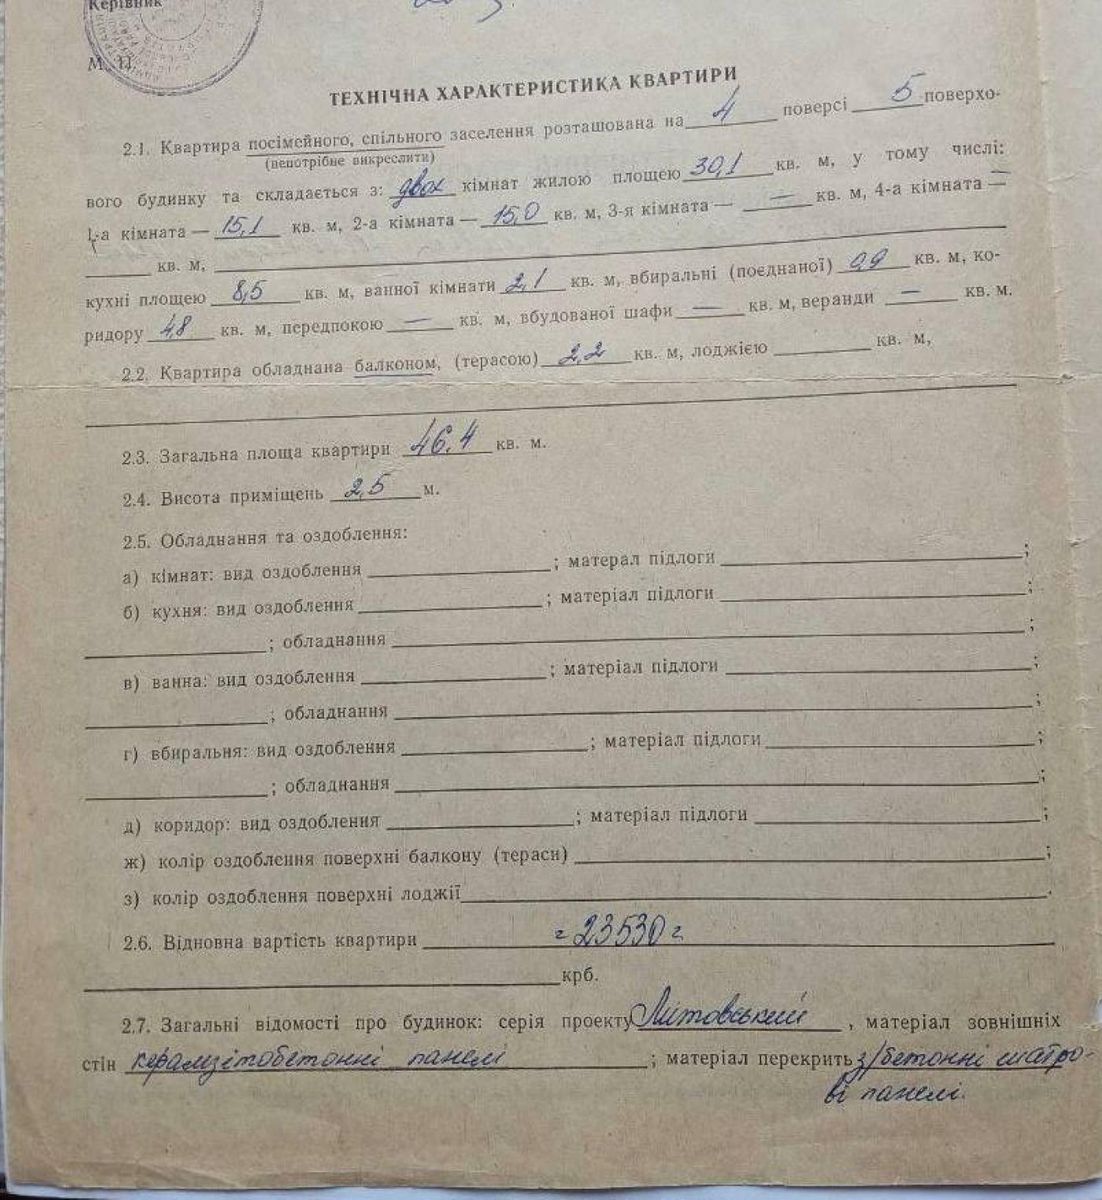 Керівник
М. П.
ТЕХНІЧНА ХАРАКТЕРИСТИКА КВАРТИРИ
2.1. Квартира посімейного, спільного заселення розташована на 4 поверсі 5 поверхо-
(непотрібне викреслити)
вого будинку та складається з: двох кімнат жилою площею 30,1 кв. м, у тому числі:
1-а кімната — 15,1 кв. м, 2-а кімната — 15,0 кв. м, 3-я кімната — — кв. м, 4-а кімната —
кв. м,
кухні площею 8,5 кв. м, ванної кімнати 2,1 кв. м, вбиральні (поєднаної) 0,9 кв. м, ко-
ридору 4,8 кв. м, передпокою — кв. м, вбудованої шафи — кв. м, веранди — кв. м.
2.2. Квартира обладнана балконом, (терасою) 2,2 кв. м, лоджією кв. м,
2.3. Загальна площа квартири 46,4 кв. м.
2.4. Висота приміщень 2,5 м.
2.5. Обладнання та оздоблення:
а) кімнат: вид оздоблення ; матерал підлоги ;
б) кухня: вид оздоблення ; матеріал підлоги ;
; обладнання ;
в) ванна: вид оздоблення ; матеріал підлоги ;
; обладнання ;
г) вбиральня: вид оздоблення ; матеріал підлоги ;
; обладнання ;
д) коридор: вид оздоблення ; матеріал підлоги ;
ж) колір оздоблення поверхні балкону (тераси) ;
з) колір оздоблення поверхні лоджії .
2.6. Відновна вартість квартири = 23530 =
крб.
2.7. Загальні відомості про будинок: серія проекту Литовський , матеріал зовнішніх
стін керамзітобетонні панелі ; матеріал перекрить з/бетонні шатро-
ві панелі.